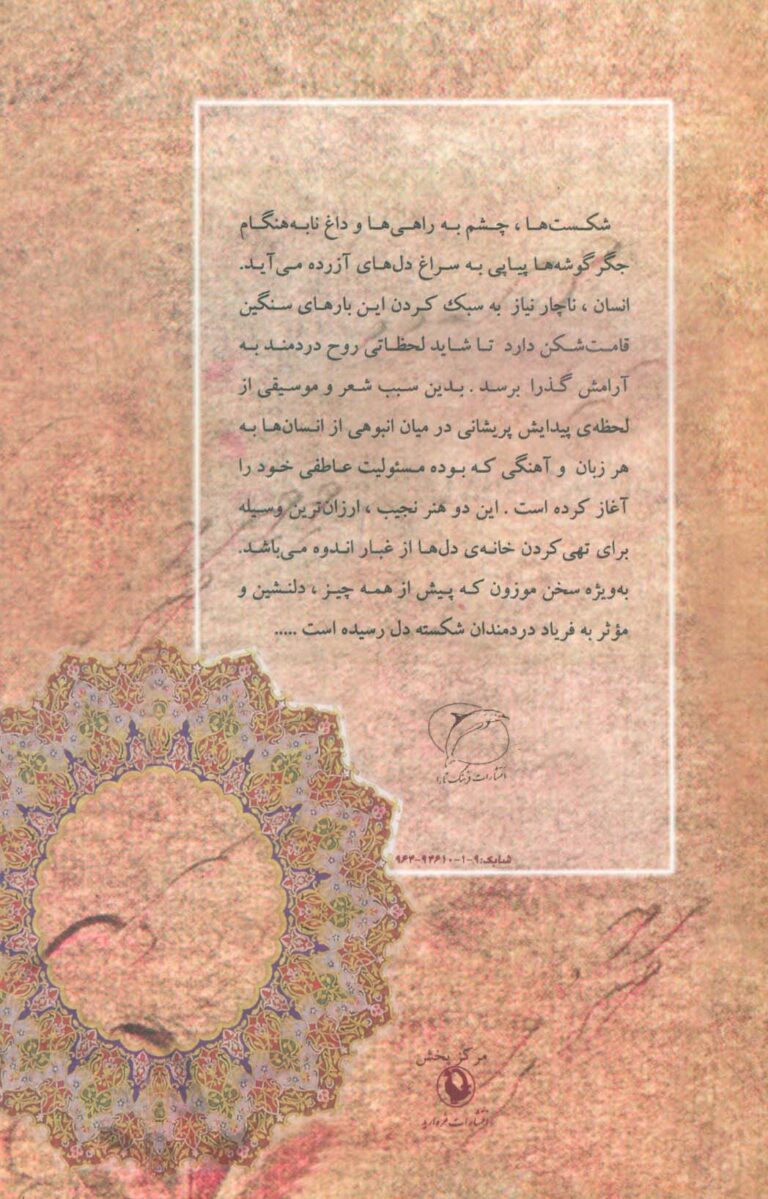 شکست‌ها ، چشم به راهی‌ها و داغ نابه‌هنگام
جگرگوشه‌ها پیاپی به سراغ دل‌های آزرده می‌آید.
انسان ، ناچار نیاز به سبک کردن این بارهای سنگین
قامت‌شکن دارد تا شاید لحظاتی روح دردمند به
آرامش گذرا برسد . بدین سبب شعر و موسیقی از
لحظه‌ی پیدایش پریشانی در میان انبوهی از انسان‌ها به
هر زبان و آهنگی که بوده مسئولیت عاطفی خود را
آغاز کرده است . این دو هنر نجیب ، ارزان‌ترین وسیله
برای تهی‌کردن خانه‌ی دل‌ها از غبار اندوه می‌باشد.
به‌ویژه سخن موزون که پیش از همه چیز ، دلنشین و
مؤثر به فریاد دردمندان شکسته دل رسیده است .....
انتشارات فرهنگ
شابک:۹-۱-۹۴۶۱۰-۹۶۴
مرکز پخش
انتشارات مروارید